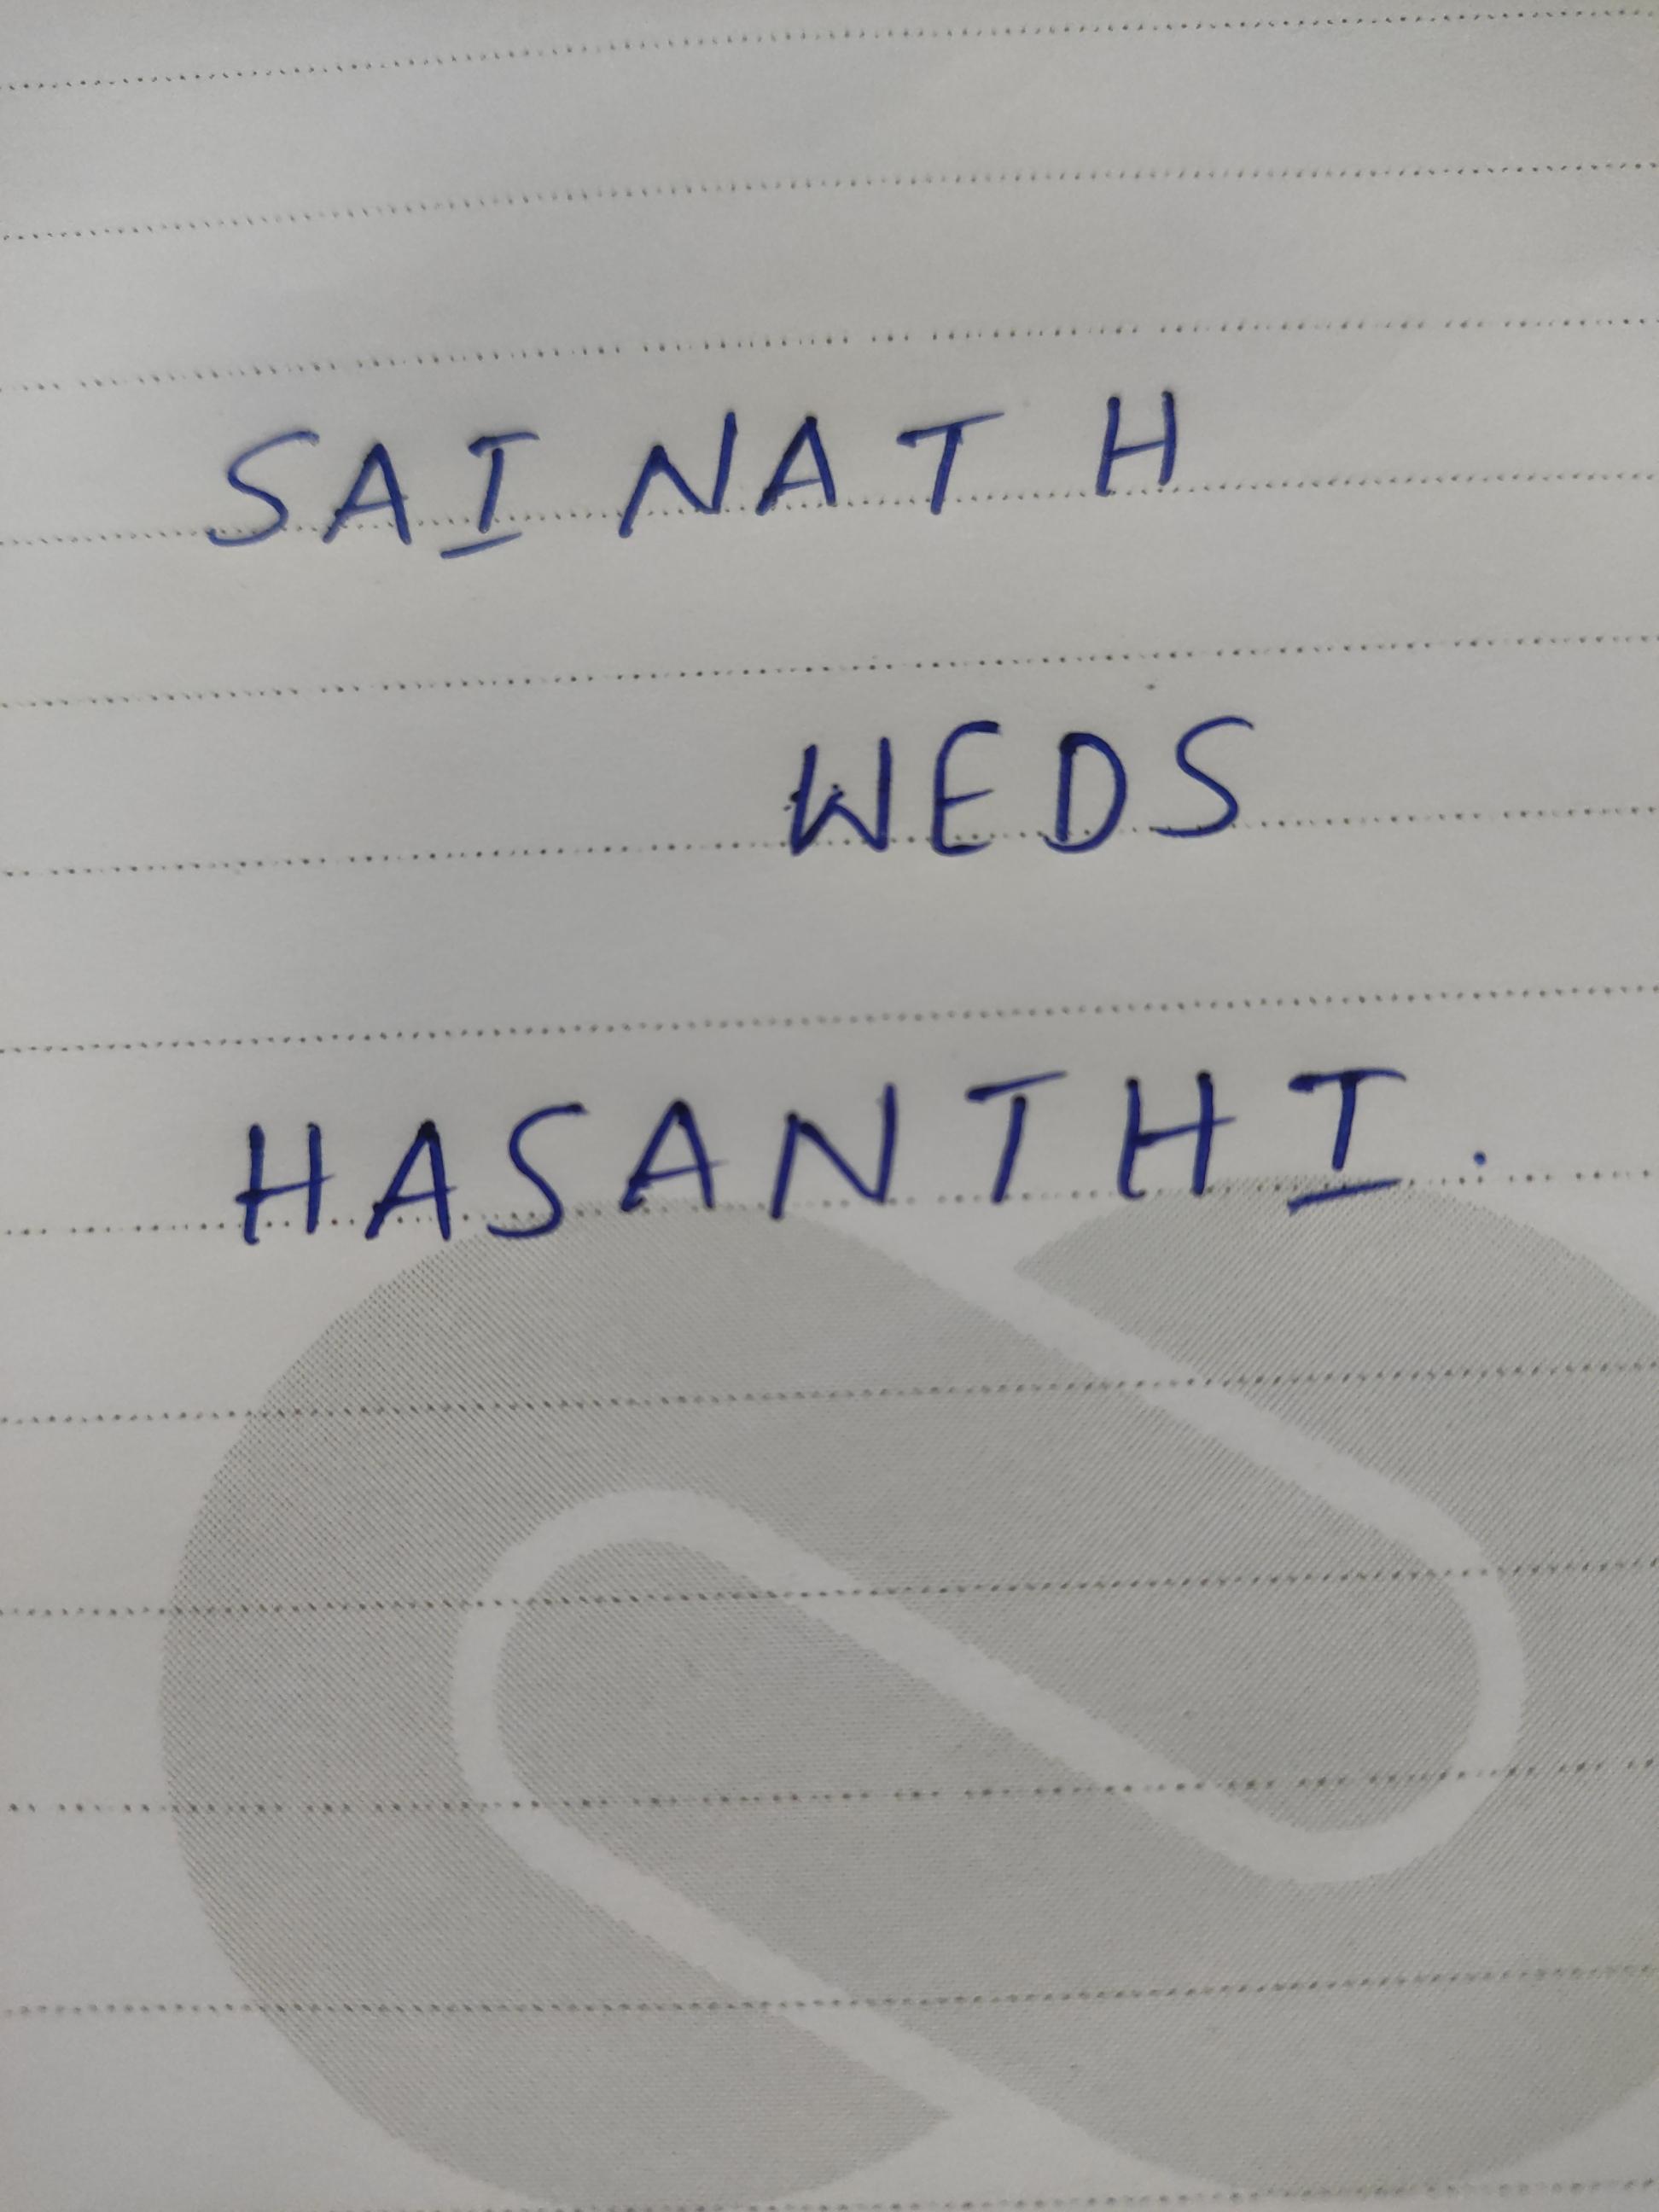 SAINATH
WEDS
HASANTHI.